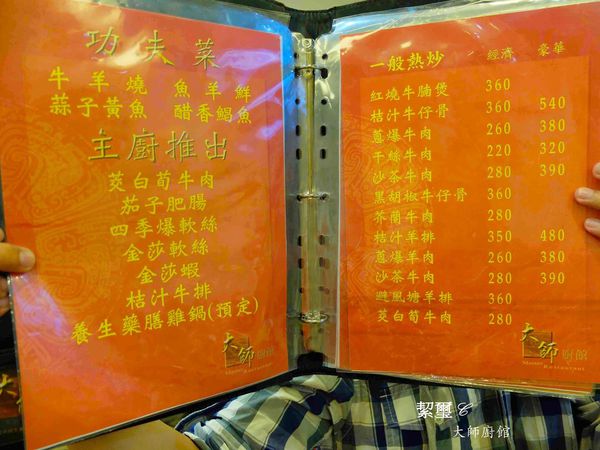 功夫菜
牛羊燒 魚羊鮮
蒜子黃魚 醋香鯧魚
主廚推出
茭白筍牛肉
茄子肥腸
四季爆軟絲
金莎軟絲
金莎蝦
桔汁牛排
養生藥膳雞鍋(預定)
大師廚館
Master Restaurant
一般熱炒 經濟 豪華
紅燒牛腩煲 360
桔汁牛仔骨 360 540
蔥爆牛肉 260 380
干絲牛肉 220 320
沙茶牛肉 280 390
黑胡椒牛仔骨 360
芥蘭牛肉 280
桔汁羊排 350 480
蔥爆羊肉 260 380
沙茶牛肉 280 390
避風塘羊排 360
茭白筍牛肉 280
大師廚館
Master Restaurant
絜璽&
大師廚館